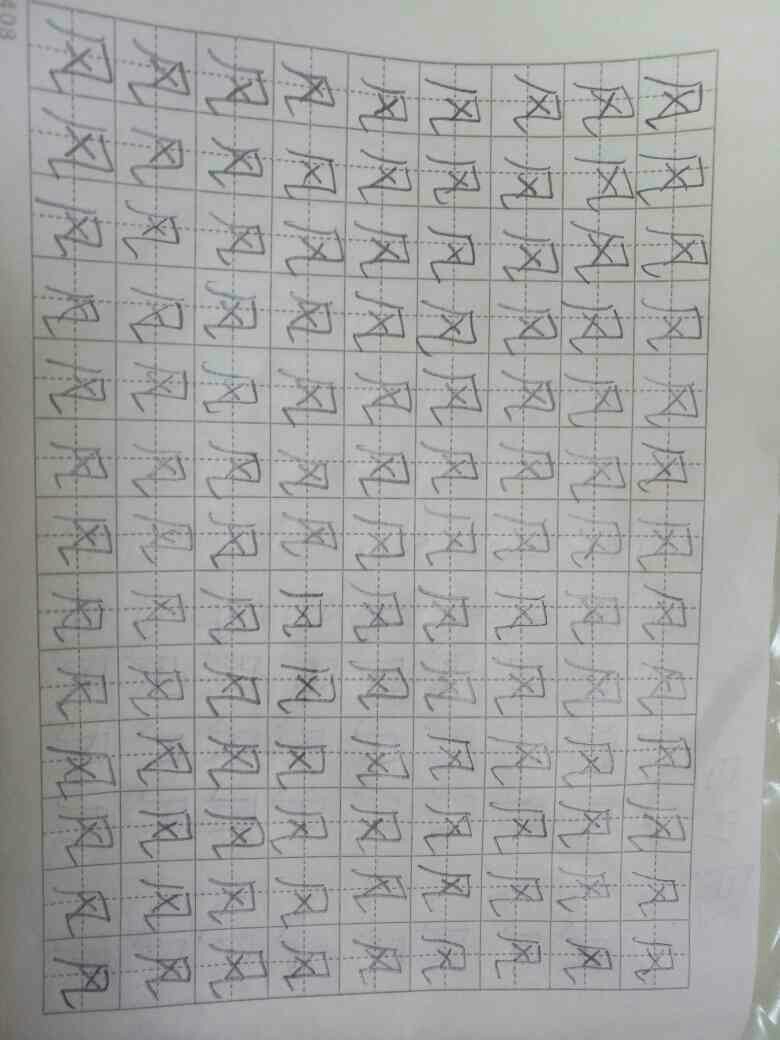 风风风风风风风风风风风风风
风风风风风风风风风风风风风
风风风风风风风风风风风风风
风风风风风风风风风风风风风
风风风风风风风风风风风风风
风风风风风风风风风风风风风
风风风风风风风风风风风风风
风风风风风风风风风风风风风
风风风风风风风风风风风风风